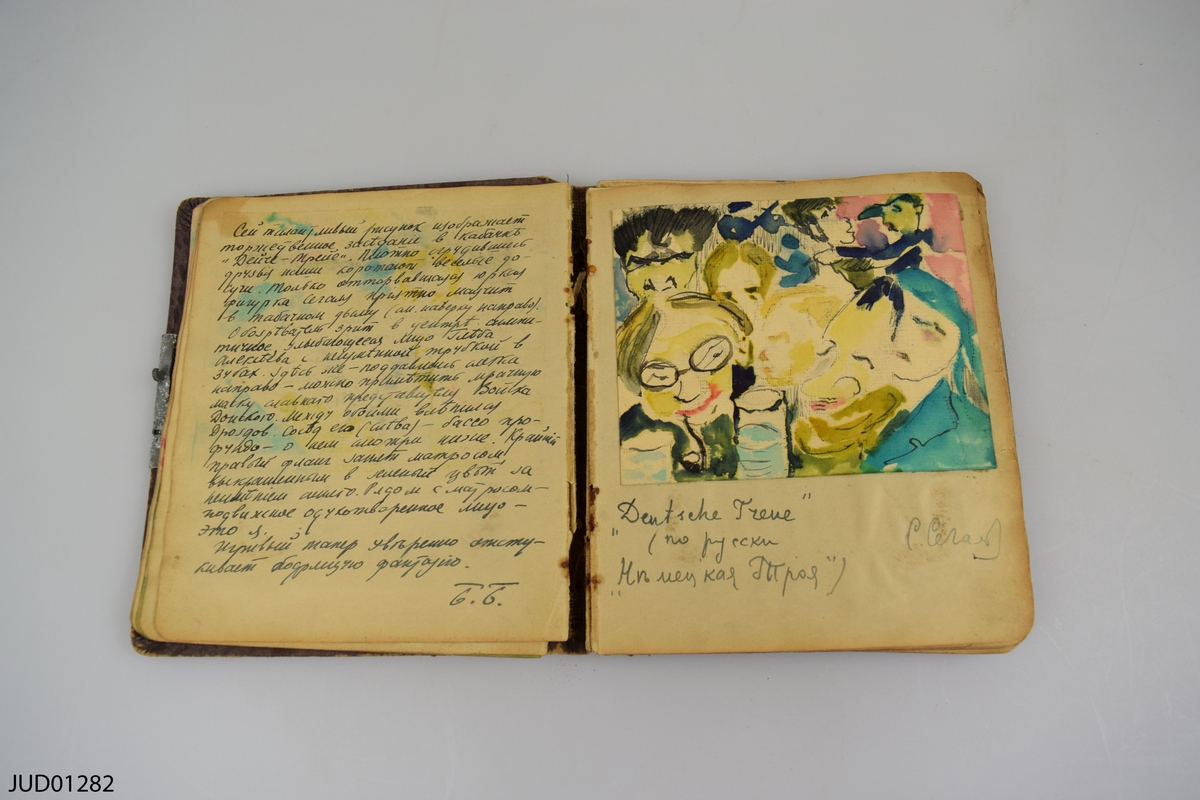 Сей талантливый рисунок изображает
торжественное заседание в кабачкѣ
"Дейче-Трейе". Плотно сгрудившись
друзья наши коротают веселые до-
суги. Только оторвавшаяся юркая
фигурка Сегаля приятно маячит
в табачном дыму (см. наверху направо).
Обозрѣватель зрит в центрѣ симпа-
тичное улыбающееся лицо Глѣба
Алексѣева с неизмѣнной трубкой в
зубах. Здѣсь же – подавшись слегка
направо – можно примѣтить мрачную
маску славного представителя Войска
Донского. Между обоими влѣпился
Дроздов. Сосѣд его (слѣва) – бассо про-
фундо – о нем смотри ниже. Крайній
правый фланг занят матросом,
выкрашенным в зеленый цвѣт за
неимѣнием синего. Рядом с матросом –
подвижное одухотворенное лицо –
это я.
Игривый тапер увѣренно отсту-
кивает бодрящую фантазію.
Б. Б.
"Deutsche Treue"
(по русски
"Нѣмецкая Троя")
(С. Сегаль)
JUD01282